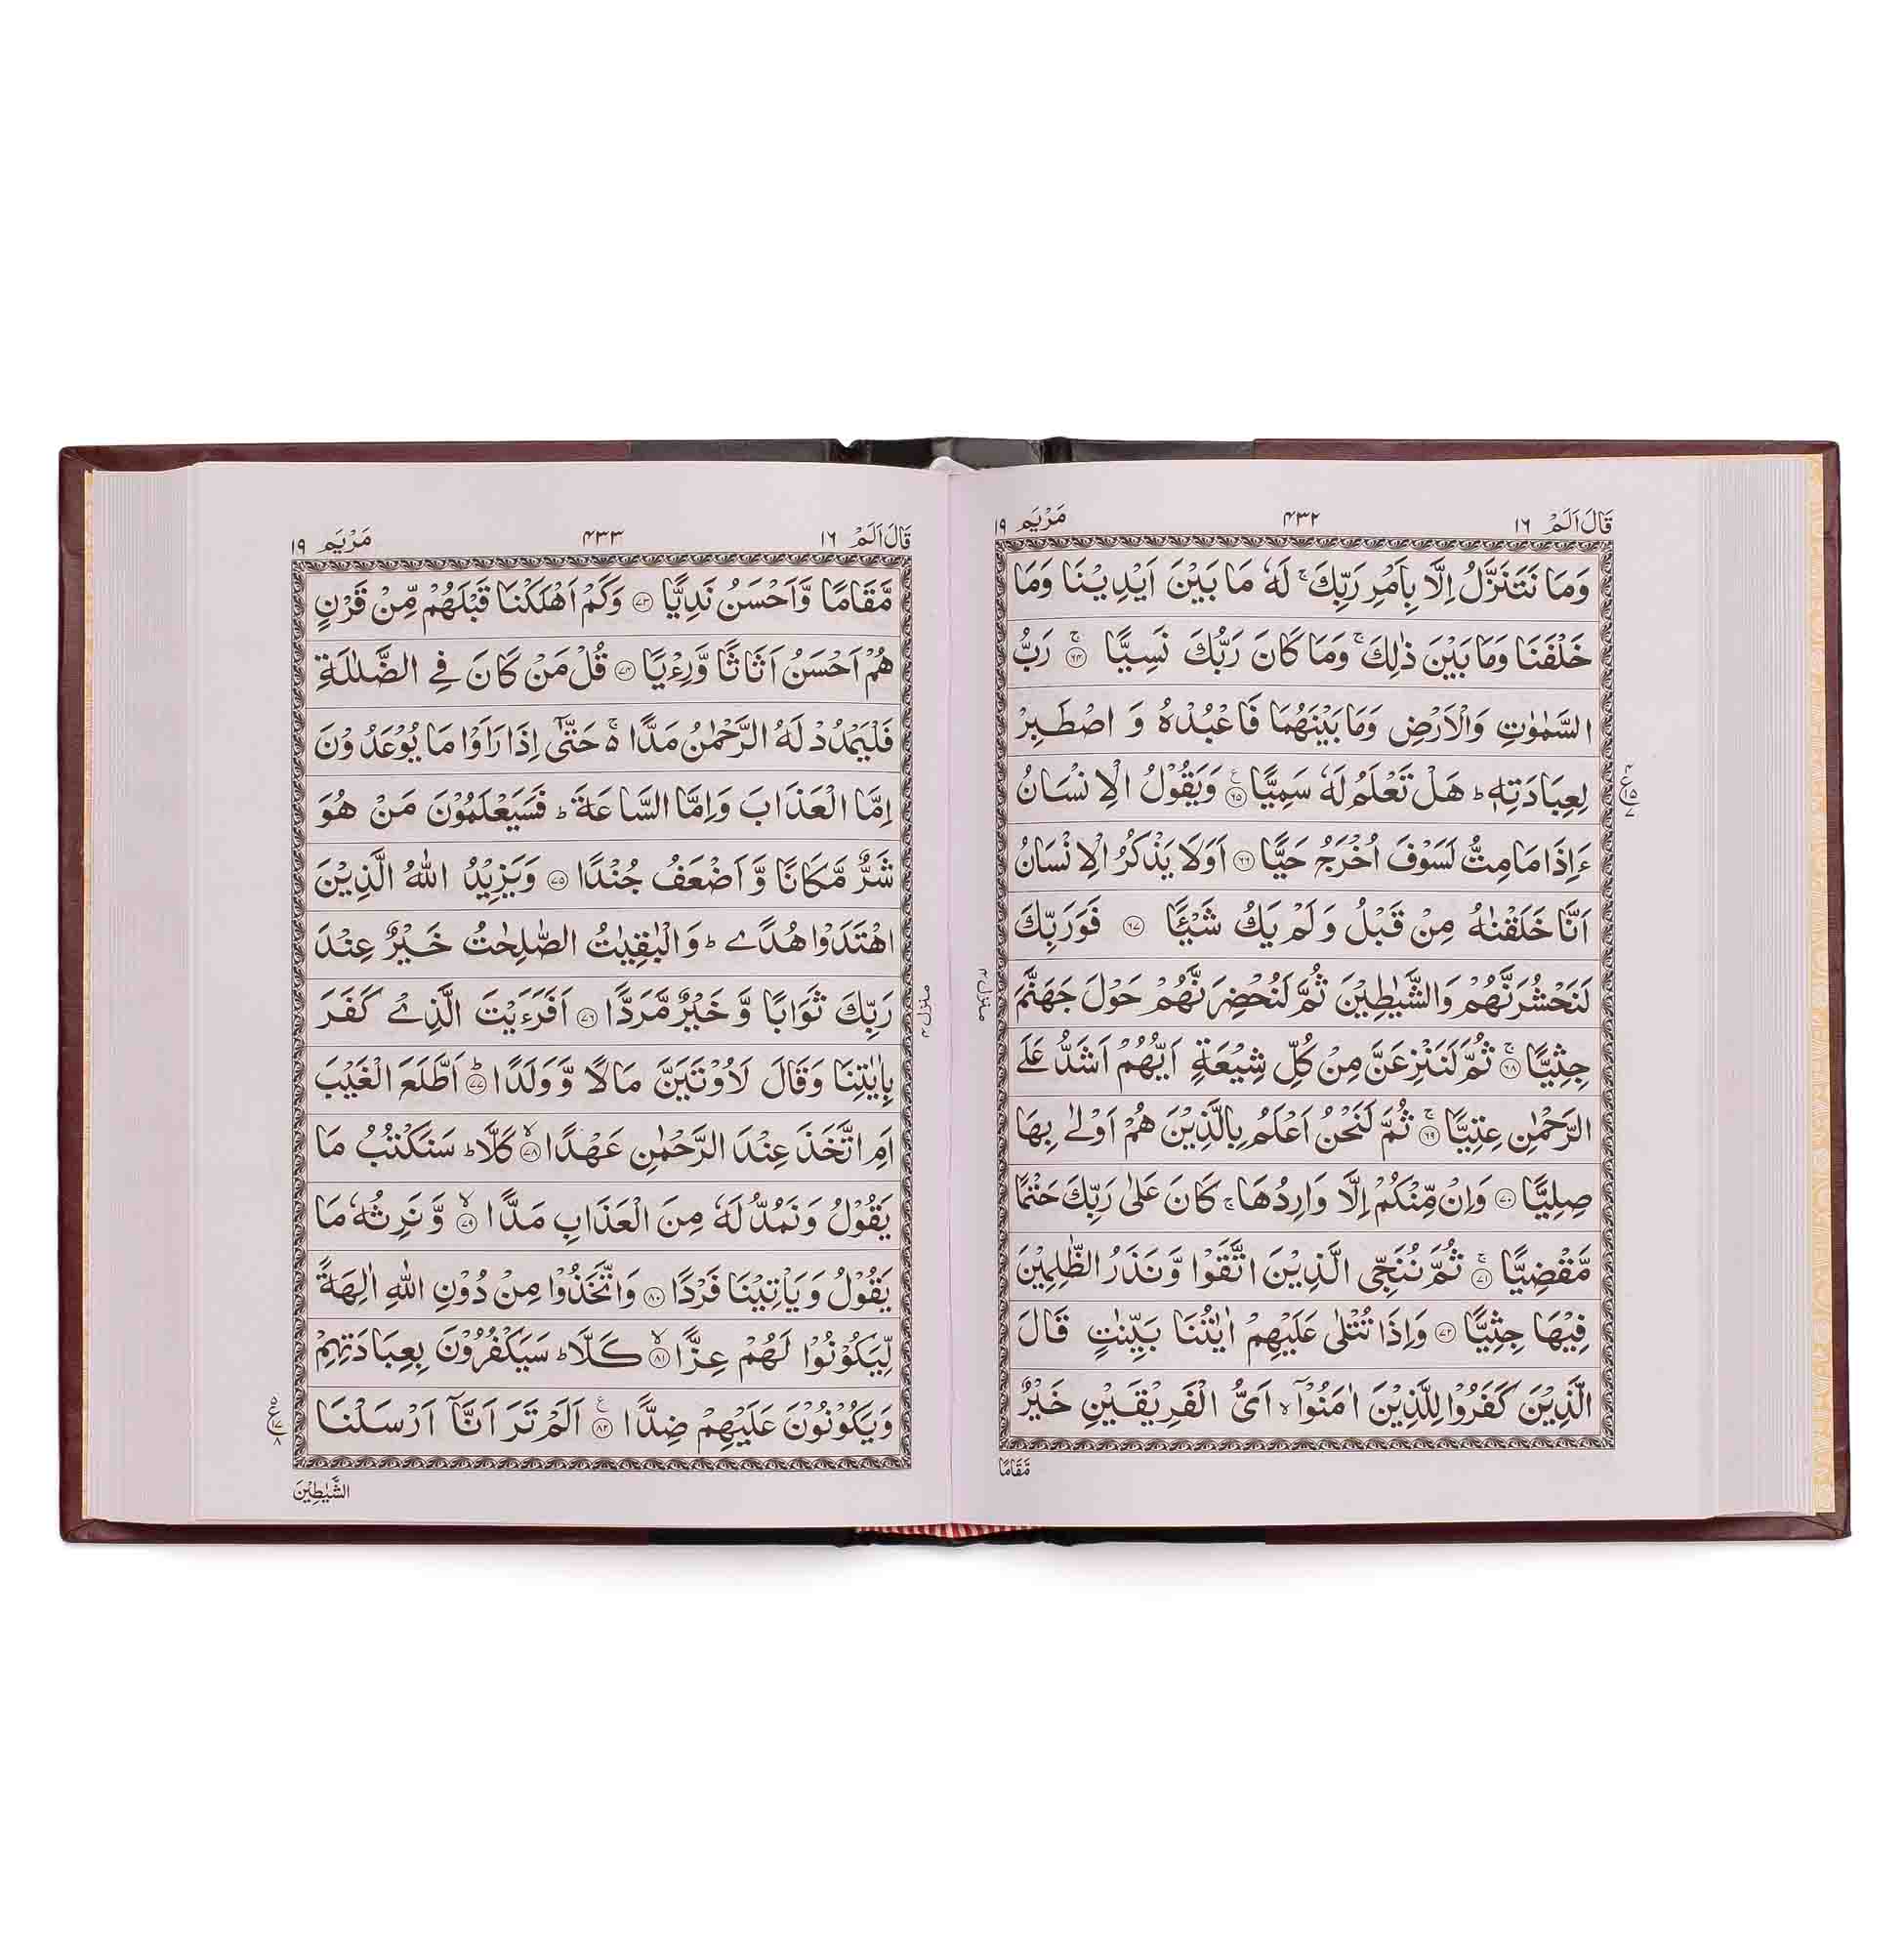 قَالَ اَلَمْ ١٦
۴۳۲
مَرْيَم ١٩
وَمَا نَتَنَزَّلُ اِلَّا بِاَمْرِ رَبِّكَ ۚ لَهٗ مَا بَيْنَ اَيْدِيْنَا وَمَا
خَلْفَنَا وَمَا بَيْنَ ذٰلِكَ ۚ وَمَا كَانَ رَبُّكَ نَسِيًّا ۚ ﴿۶۴﴾ رَبُّ
السَّمٰوٰتِ وَالْاَرْضِ وَمَا بَيْنَهُمَا فَاعْبُدْهُ وَ اصْطَبِرْ
لِعِبَادَتِهٖ ؕ هَلْ تَعْلَمُ لَهٗ سَمِيًّا ﴿۶۵﴾ ع وَيَقُوْلُ الْاِنْسَانُ
ءَاِذَا مَا مِتُّ لَسَوْفَ اُخْرَجُ حَيًّا ﴿۶۶﴾ اَوَلَا يَذْكُرُ الْاِنْسَانُ
اَنَّا خَلَقْنٰهُ مِنْ قَبْلُ وَلَمْ يَكُ شَيْـًٔا ﴿۶۷﴾ فَوَرَبِّكَ
لَنَحْشُرَنَّهُمْ وَالشَّيٰطِيْنَ ثُمَّ لَنُحْضِرَنَّهُمْ حَوْلَ جَهَنَّمَ
جِثِيًّا ۚ ﴿۶۸﴾ ثُمَّ لَنَنْزِعَنَّ مِنْ كُلِّ شِيْعَةٍ اَيُّهُمْ اَشَدُّ عَلَى
الرَّحْمٰنِ عِتِيًّا ۚ ﴿۶۹﴾ ثُمَّ لَنَحْنُ اَعْلَمُ بِالَّذِيْنَ هُمْ اَوْلٰى بِهَا
صِلِيًّا ﴿۷۰﴾ وَاِنْ مِّنْكُمْ اِلَّا وَارِدُهَا ۚ كَانَ عَلٰى رَبِّكَ حَتْمًا
مَّقْضِيًّا ۚ ﴿۷۱﴾ ثُمَّ نُنَجِّى الَّذِيْنَ اتَّقَوْا وَّنَذَرُ الظّٰلِمِيْنَ
فِيْهَا جِثِيًّا ﴿۷۲﴾ وَاِذَا تُتْلٰى عَلَيْهِمْ اٰيٰتُنَا بَيِّنٰتٍ قَالَ
الَّذِيْنَ كَفَرُوْا لِلَّذِيْنَ اٰمَنُوْۤا ۙ اَىُّ الْفَرِيْقَيْنِ خَيْرٌ
مَّقَامًا
منزل ۴
۴
ع
۱۵
۷
قَالَ اَلَمْ ١٦
۴۳۳
مَرْيَم ١٩
مَّقَامًا وَّاَحْسَنُ نَدِيًّا ﴿۷۳﴾ وَكَمْ اَهْلَكْنَا قَبْلَهُمْ مِّنْ قَرْنٍ
هُمْ اَحْسَنُ اَثَاثًا وَّرِءْيًا ﴿۷۴﴾ قُلْ مَنْ كَانَ فِى الضَّلٰلَةِ
فَلْيَمْدُدْ لَهُ الرَّحْمٰنُ مَدًّا ۚ حَتّٰۤى اِذَا رَاَوْا مَا يُوْعَدُوْنَ
اِمَّا الْعَذَابَ وَاِمَّا السَّاعَةَ ؕ فَسَيَعْلَمُوْنَ مَنْ هُوَ
شَرٌّ مَّكَانًا وَّاَضْعَفُ جُنْدًا ﴿۷۵﴾ وَيَزِيْدُ اللّٰهُ الَّذِيْنَ
اهْتَدَوْا هُدًى ؕ وَالْبٰقِيٰتُ الصّٰلِحٰتُ خَيْرٌ عِنْدَ
رَبِّكَ ثَوَابًا وَّخَيْرٌ مَّرَدًّا ﴿۷۶﴾ اَفَرَءَيْتَ الَّذِىْ كَفَرَ
بِاٰيٰتِنَا وَقَالَ لَاُوْتَيَنَّ مَالًا وَّوَلَدًا ؕ ﴿۷۷﴾ اَطَّلَعَ الْغَيْبَ
اَمِ اتَّخَذَ عِنْدَ الرَّحْمٰنِ عَهْدًا ۙ ﴿۷۸﴾ كَلَّا ؕ سَنَكْتُبُ مَا
يَقُوْلُ وَنَمُدُّ لَهٗ مِنَ الْعَذَابِ مَدًّا ۙ ﴿۷۹﴾ وَّنَرِثُهٗ مَا
يَقُوْلُ وَيَاْتِيْنَا فَرْدًا ﴿۸۰﴾ وَاتَّخَذُوْا مِنْ دُوْنِ اللّٰهِ اٰلِهَةً
لِّيَكُوْنُوْا لَهُمْ عِزًّا ۙ ﴿۸۱﴾ كَلَّا ؕ سَيَكْفُرُوْنَ بِعِبَادَتِهِمْ
وَيَكُوْنُوْنَ عَلَيْهِمْ ضِدًّا ﴿۸۲﴾ ع اَلَمْ تَرَ اَنَّاۤ اَرْسَلْنَا
الشَّيٰطِيْنَ
منزل ۴
۵
ع
۱۷
۸